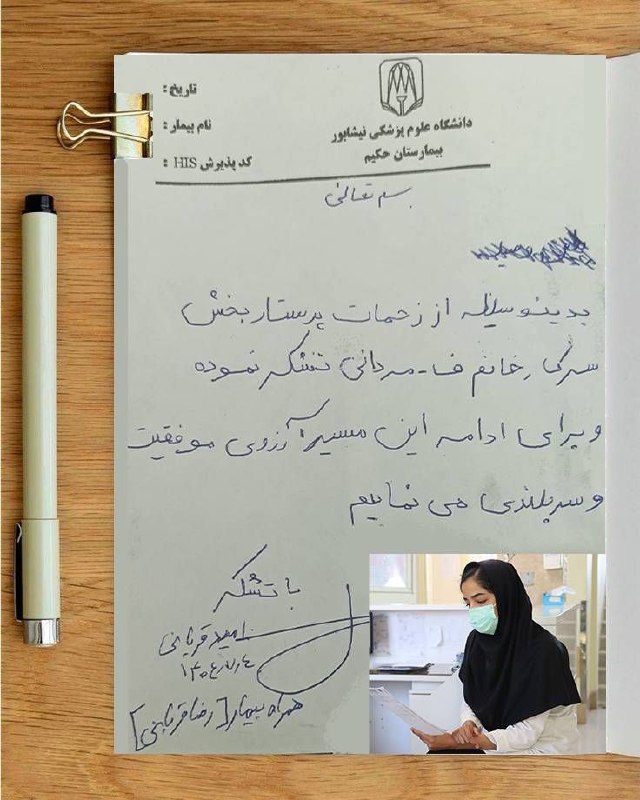 تاریخ :
نام بیمار :
کد پذیرش HIS :
دانشگاه علوم پزشکی نیشابور
بیمارستان حکیم
بسم تعالی
بدینوسیله از زحمات پرستار بخش
سرکار خانم ف-مردانی تشکر نموده
و برای ادامه این مسیر آرزوی موفقیت
و سربلندی می نمایم
با تشکر
امید قربانی
۱۴۰۴/۷/۴
همراه بیمار [رضا قربانی]